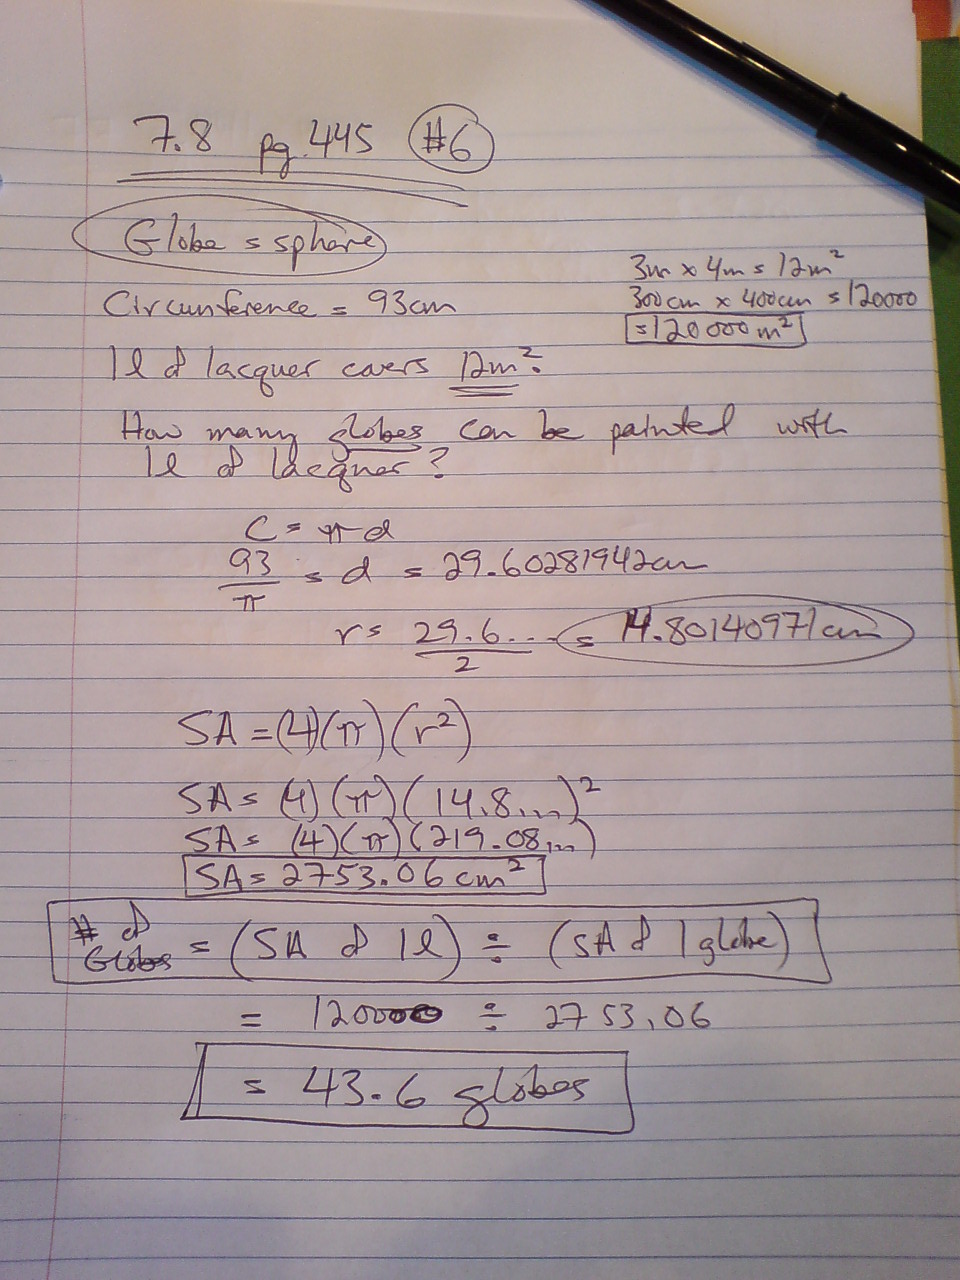 7.8 pg. 445 #6
Globe = sphere
Circumference = 93cm
3m x 4m = 12m²
300cm x 400cm = 120000
= 120000m²
1l of lacquer covers 12m².
How many globes can be painted with
1l of lacquer?
C = πd
93/π = d = 29.60281942cm
r = 29.6.../2 = 14.80140971cm
SA = (4)(π)(r²)
SA = (4)(π)(14.8...)²
SA = (4)(π)(219.08...)
SA = 2753.06 cm²
# of Globes = (SA of 1l) ÷ (SA of 1 globe)
= 120000 ÷ 2753.06
= 43.6 globes